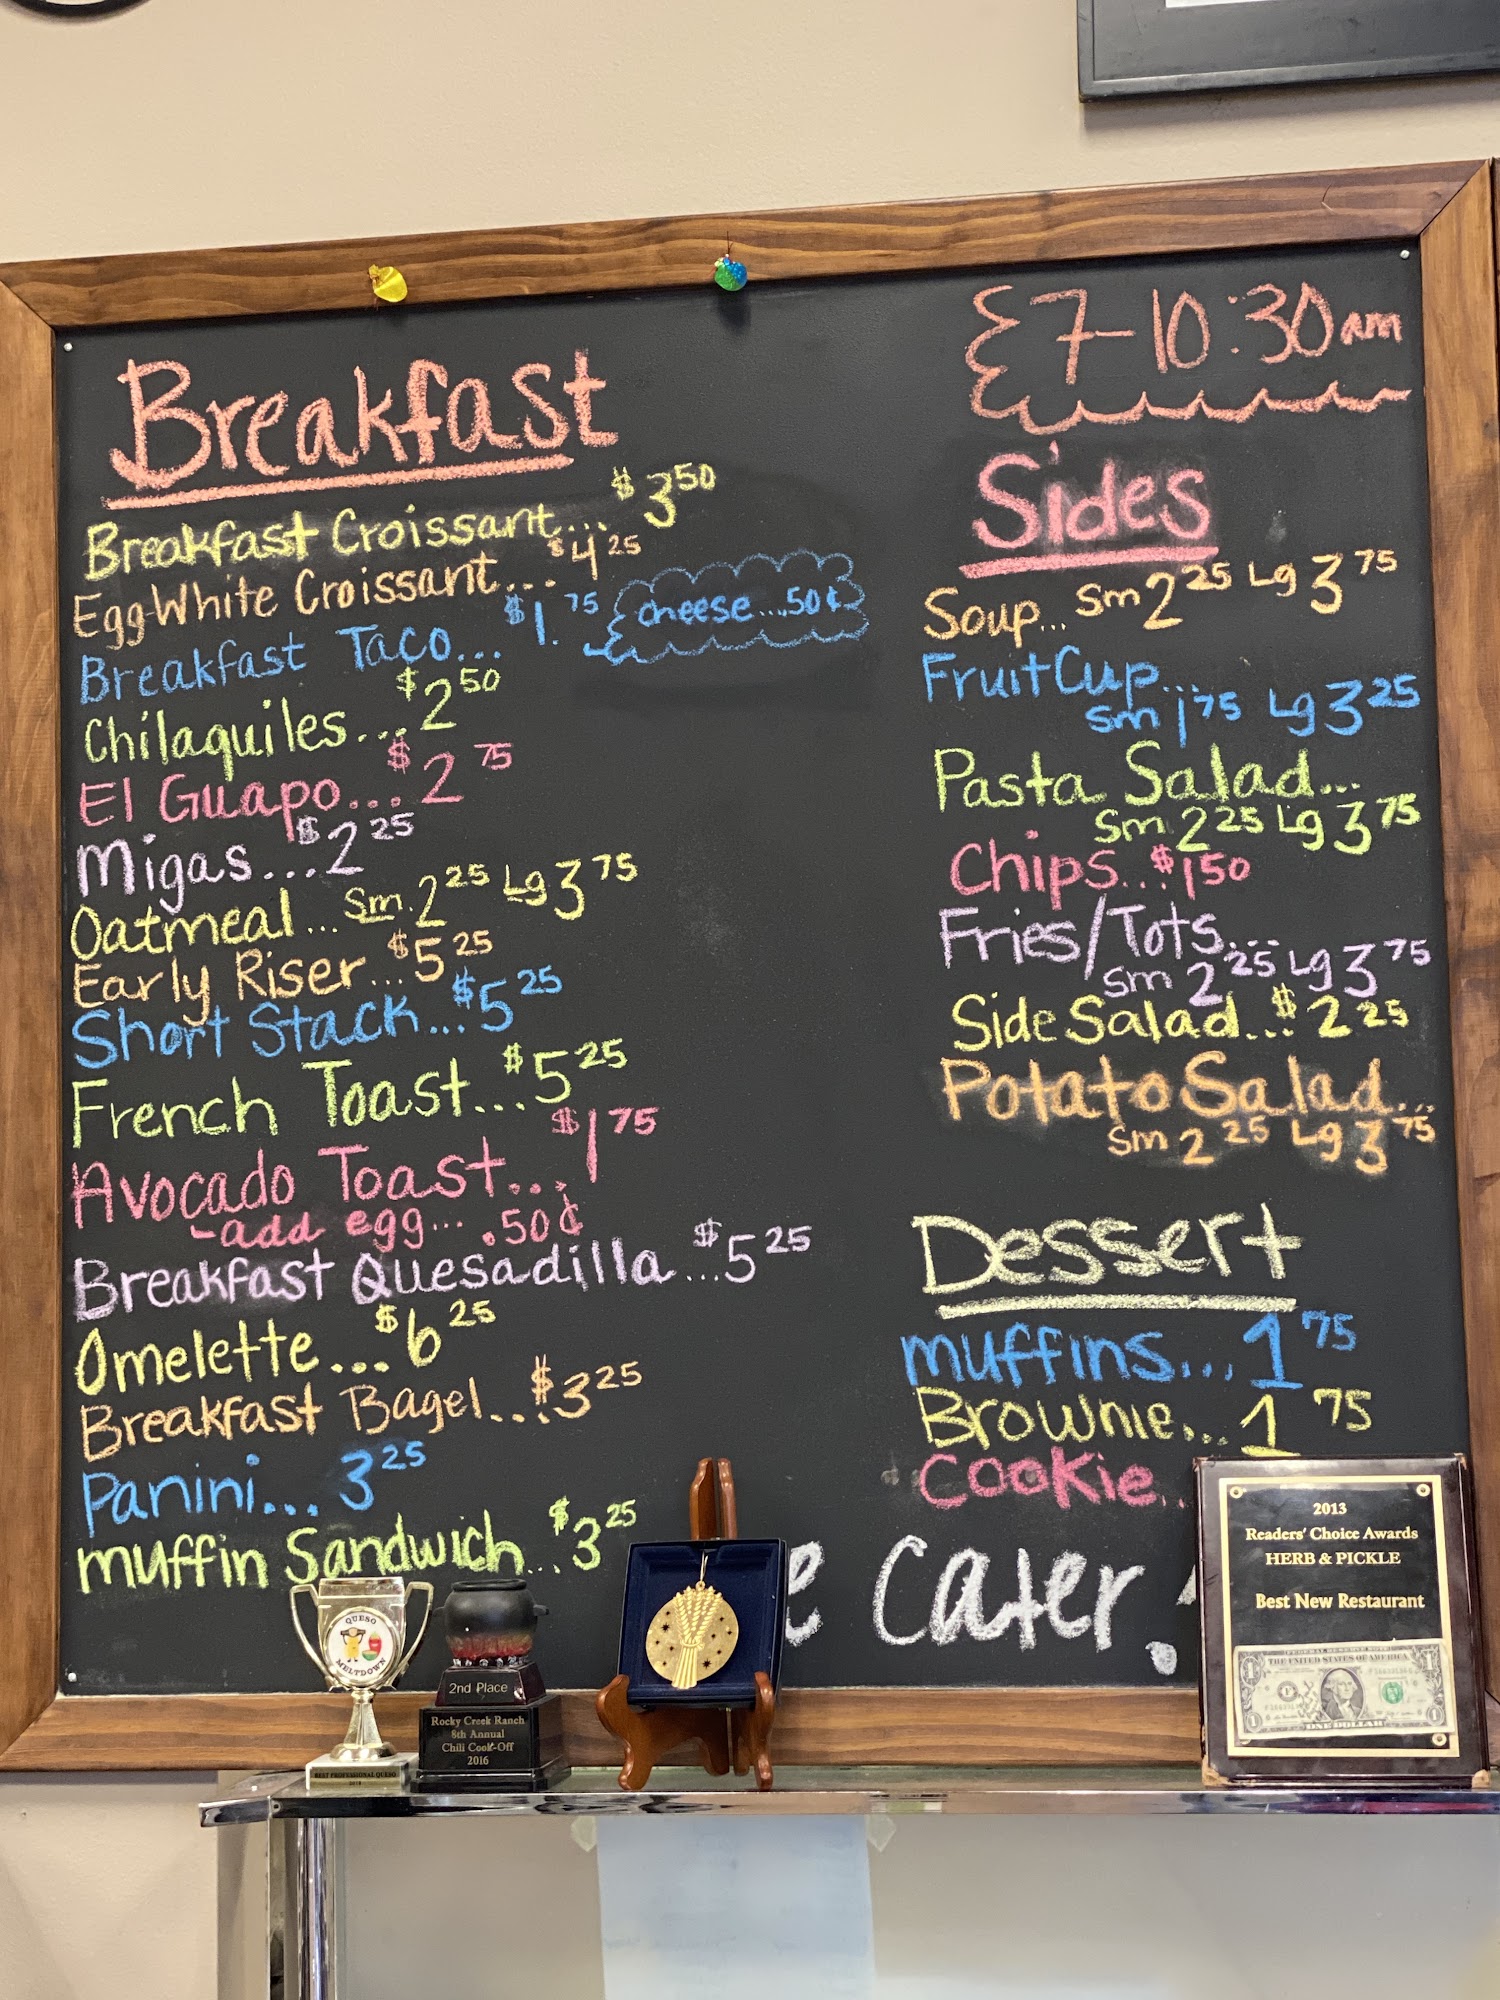 Breakfast
Breakfast Croissant... $3 50
Egg-White Croissant... $4 25
Breakfast Taco... $1. 75
cheese...50¢
Chilaquiles... $2 50
El Guapo... $2 75
Migas... $2 25
Oatmeal... Sm. 2 25 Lg 3 75
Early Riser... $5 25
Short Stack... $5 25
French Toast... $5 25
Avocado Toast... $1 75
-add egg... .50¢
Breakfast Quesadilla... $5 25
Omelette... $6 25
Breakfast Bagel... $3 25
Panini... 3 25
muffin Sandwich... $3 25
7-10:30am
Sides
Soup... Sm 2 25 Lg 3 75
Fruit Cup...
Sm 1 75 Lg 3 25
Pasta Salad...
Sm 2 25 Lg 3 75
Chips... $1 50
Fries/Tots...
Sm 2 25 Lg 3 75
Side Salad... $2 25
Potato Salad...
Sm 2 25 Lg 3 75
Dessert
muffins... 1 75
Brownie... 1 75
Cookie...
e cater.
QUESO
MELTDOWN
BEST PROFESSIONAL QUESO
2nd Place
Rocky Creek Ranch
8th Annual
Chili Cook-Off
2016
2013
Readers' Choice Awards
HERB & PICKLE
Best New Restaurant
FEDERAL RESERVE NOTE
THE UNITED STATES OF AMERICA
ONE DOLLAR